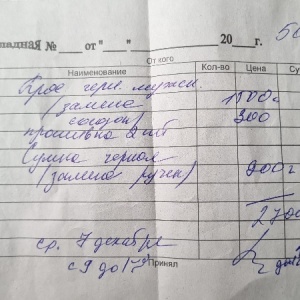 ладная № от " " 20 г. 50
От кого
Наименование Кол-во Цена Су
черн. мужск.
(замена 1500
300
прошивка 2 шт
Сумка черная
(замена ручек) 900
270
ср. 7 декабря
с 9 до 17 Принял